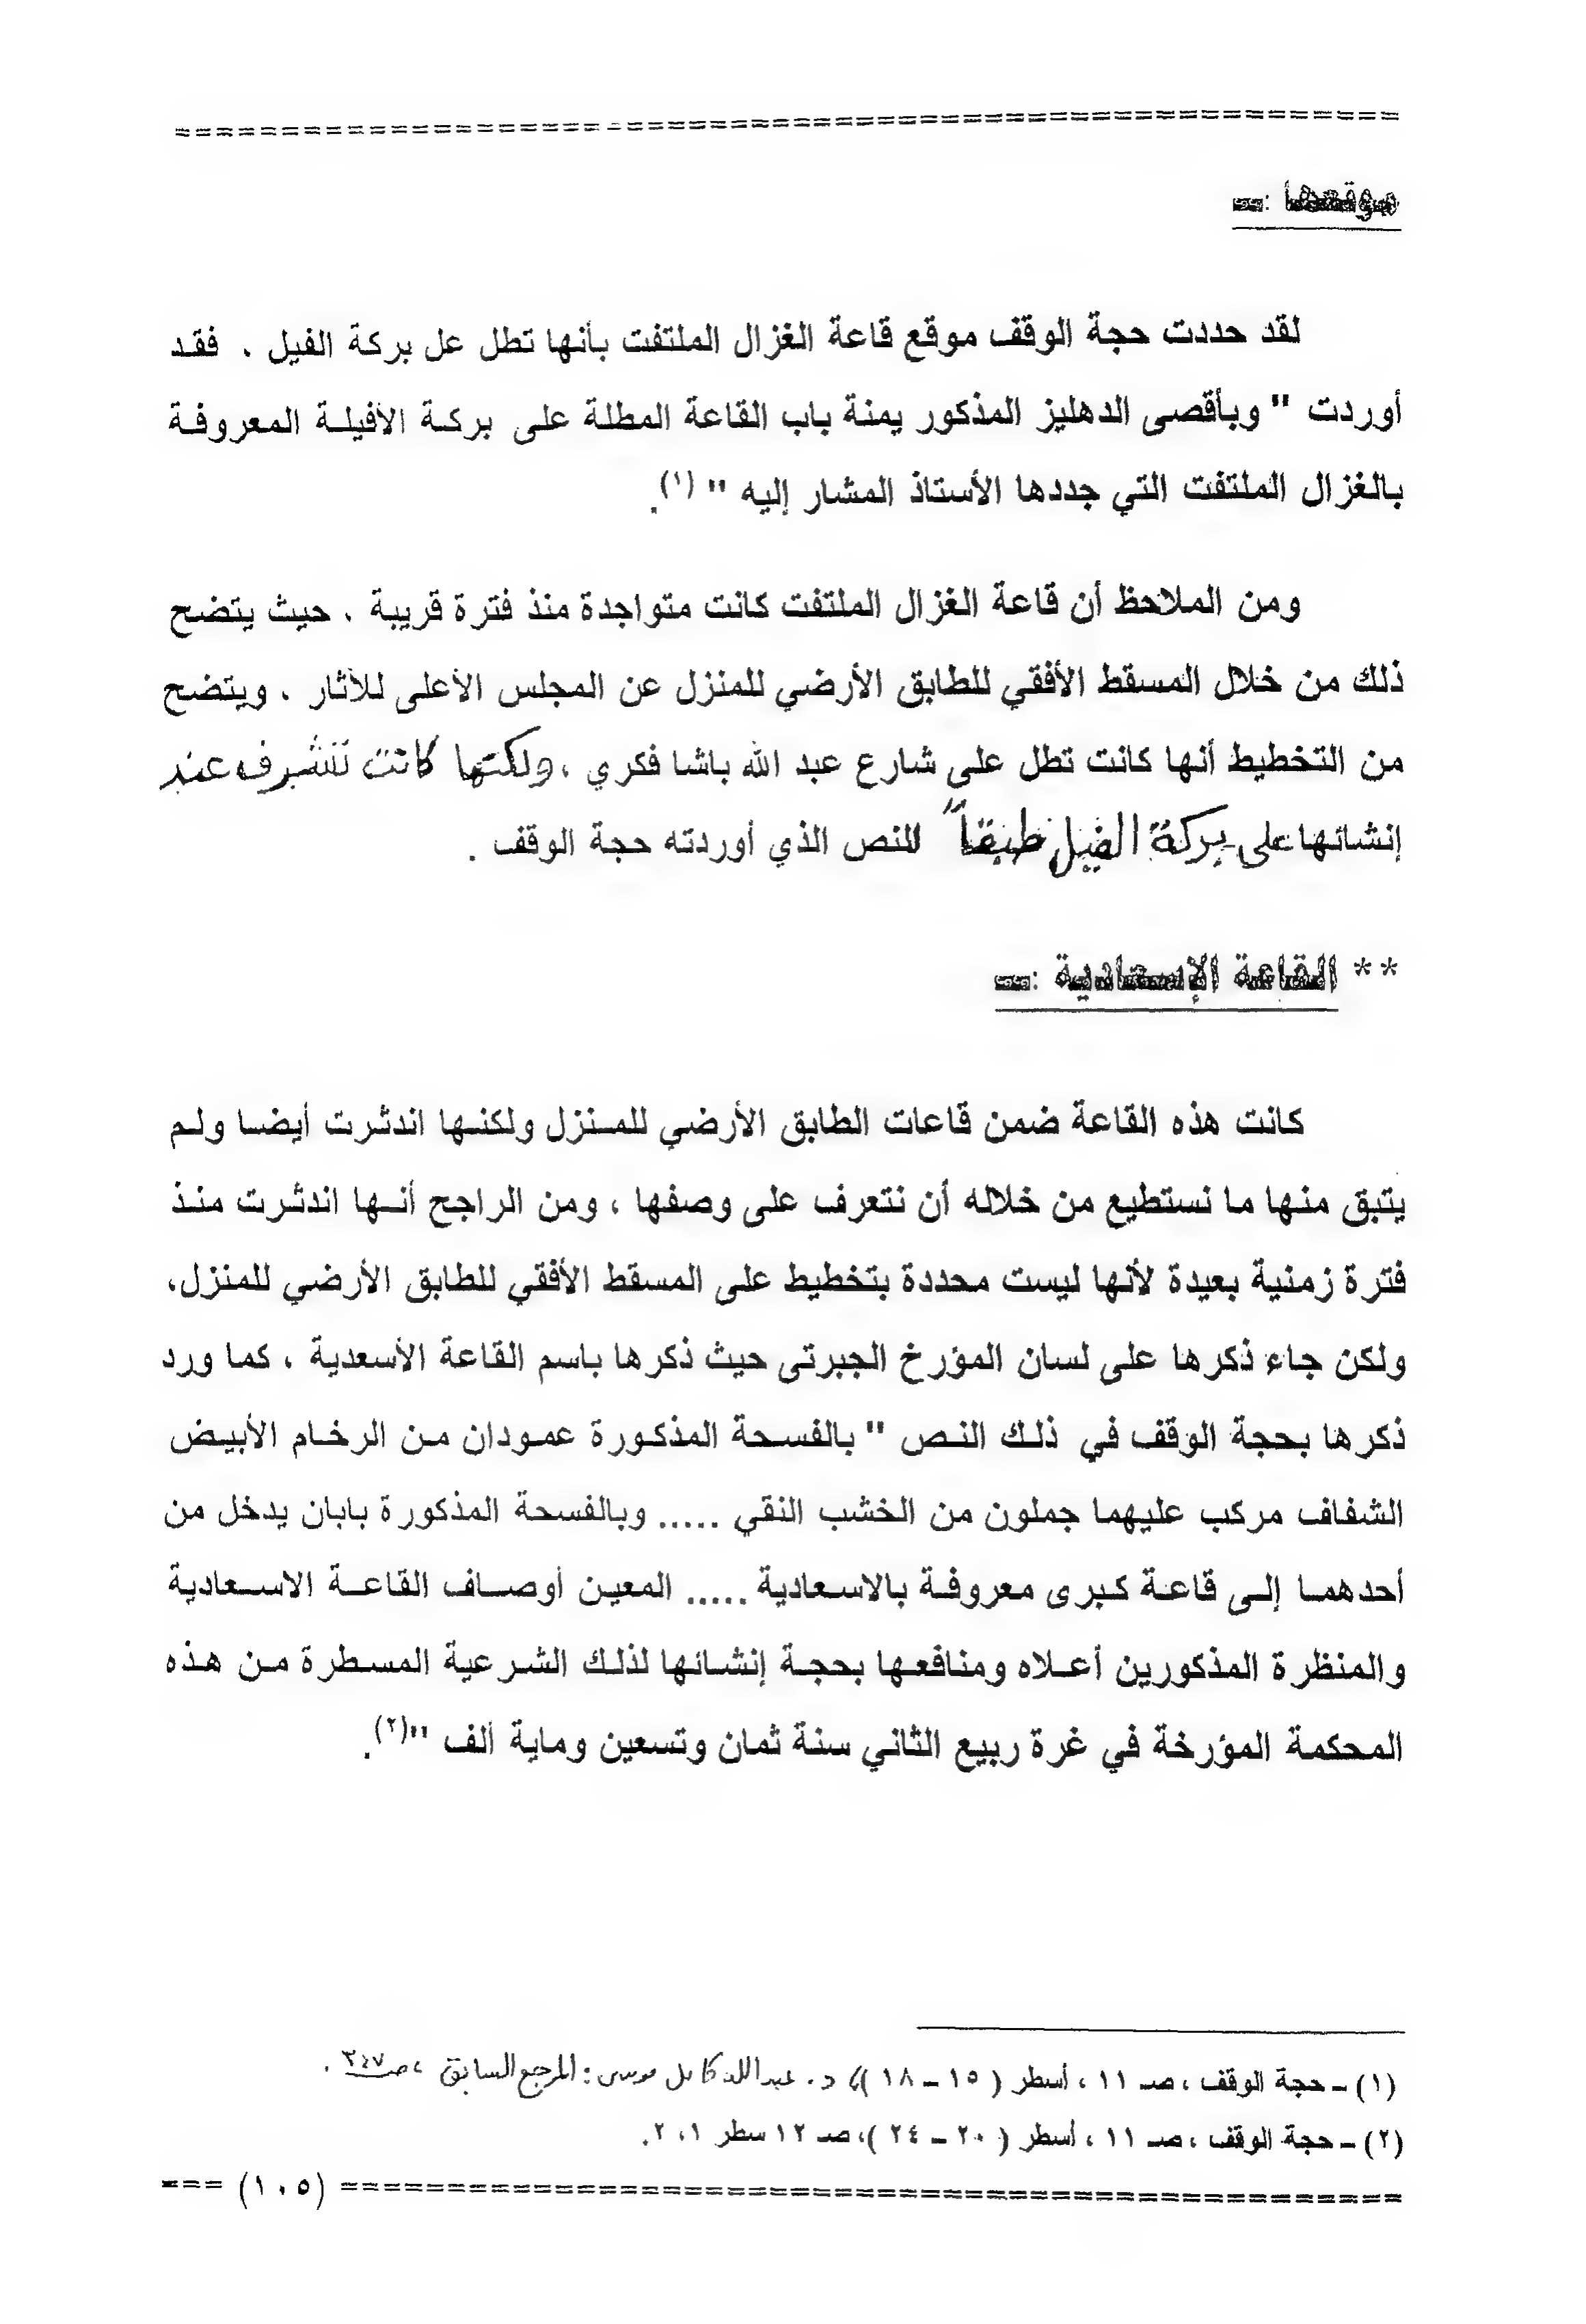 موقعها :ــ
لقد حددت حجة الوقف موقع قاعة الغزال الملتفت بأنها تطل عل بركة الفيل ، فقد
أوردت " وبأقصى الدهليز المذكور يمنة باب القاعة المطلة على بركة الأفيلة المعروفة
بالغزال الملتفت التي جددها الأستاذ المشار إليه " (١).
ومن الملاحظ أن قاعة الغزال الملتفت كانت متواجدة منذ فترة قريبة ، حيث يتضح
ذلك من خلال المسقط الأفقي للطابق الأرضي للمنزل عن المجلس الأعلى للآثار ، ويتضح
من التخطيط أنها كانت تطل على شارع عبد الله باشا فكري ، ولكنها كانت تشرف عند
إنشائها على بركة الفيل طبقاً للنص الذي أوردته حجة الوقف .
** القاعة الإسعادية :ــ
كانت هذه القاعة ضمن قاعات الطابق الأرضي للمنزل ولكنها اندثرت أيضا ولم
يتبق منها ما نستطيع من خلاله أن نتعرف على وصفها ، ومن الراجح أنها اندثرت منذ
فترة زمنية بعيدة لأنها ليست محددة بتخطيط على المسقط الأفقي للطابق الأرضي للمنزل،
ولكن جاء ذكرها على لسان المؤرخ الجبرتى حيث ذكرها باسم القاعة الأسعدية ، كما ورد
ذكرها بحجة الوقف في ذلك النص " بالفسحة المذكورة عمودان من الرخام الأبيض
الشفاف مركب عليهما جملون من الخشب النقي ..... وبالفسحة المذكورة بابان يدخل من
أحدهما إلى قاعة كبرى معروفة بالاسعادية ..... المعين أوصاف القاعة الاسعادية
والمنظرة المذكورين أعلاه ومنافعها بحجة إنشائها لذلك الشرعية المسطرة من هذه
المحكمة المؤرخة في غرة ربيع الثاني سنة ثمان وتسعين وماية ألف "(٢).
(١) – حجة الوقف ، صـ ١١ ، أسطر ( ١٥ – ١٨ )، د. عبدالله كامل موسى : المرجع السابق ، صـ ٣٤٧ .
(٢) – حجة الوقف ، صـ ١١ ، أسطر ( ٢٠ – ٢٤ )، صـ ١٢ سطر ١، ٢.
(١٠٥)